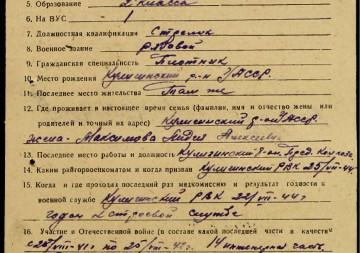 5. Образование 2 класса
6. На ВУС 1
7. Должностная квалификация Стрелок
8. Военное звание рядовой
9. Гражданская специальность Плотник
10. Место рождения р-н УАССР
11. Последнее место жительства Там же
12. Где проживает в настоящее время семья (фамилия, имя и отчество жены или
родителей и точный их адрес) р-он УАССР
жена - Максимова Лидия
13. Последнее место работы и должность р-он.
14. Каким райгорвоенкоматом и когда призван РВК 25/VIII-41
15. Когда и где проходил последний раз медкомиссию и результат годности к
военной службе РВК 22/VII-44 г
годен к строевой службе
16. Участие в Отечественной войне (в составе какой последней части и в качестве
по 14 инженерная часть